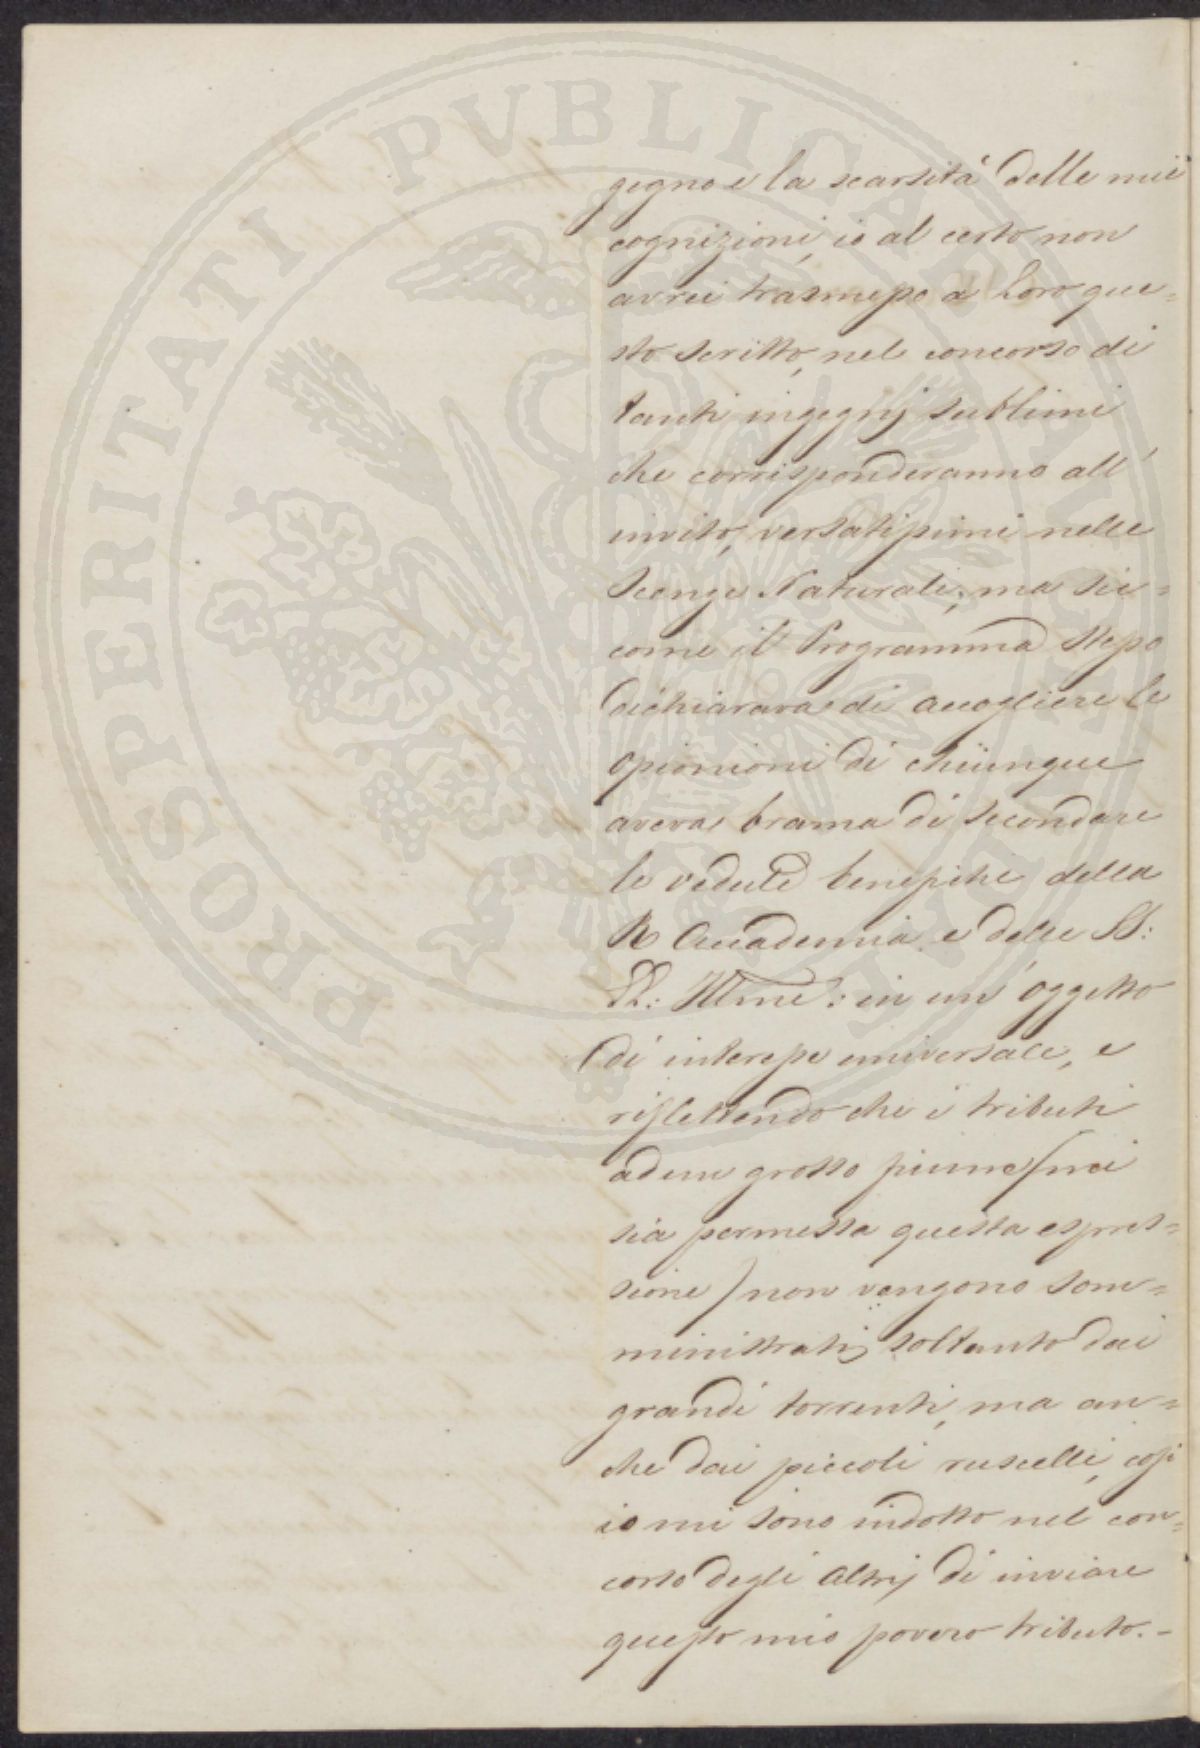 PROSPERITATI PVBLICAE AVGENDAE
gegno e la scarsità delle mie
cognizioni, io al certo non
avrei trasmesso a Loro que=
sto scritto, nel concorso di
tanti ingegnj sublimi
che corrisponderanno all'
invito, versatissimi nelle
Scenze Naturali; ma sic=
come il Programma stesso
dichiarava di accogliere le
opionioni di chiunque
aveva brama di secondare
le vedute benefiche della
R Accademia e delle SS:
LL: Illme: in un' oggetto
di interesse universale, e
riflettendo che i tributi
ad un grosso fiume (mi
sia permessa questa espres=
sione) non vengono som=
ministratj soltanto dai
grandi torrenti, ma an=
che dai piccoli ruscelli, così
io mi sono indotto nel con=
corso degli altrj di inviare
questo mio povero tributo.-